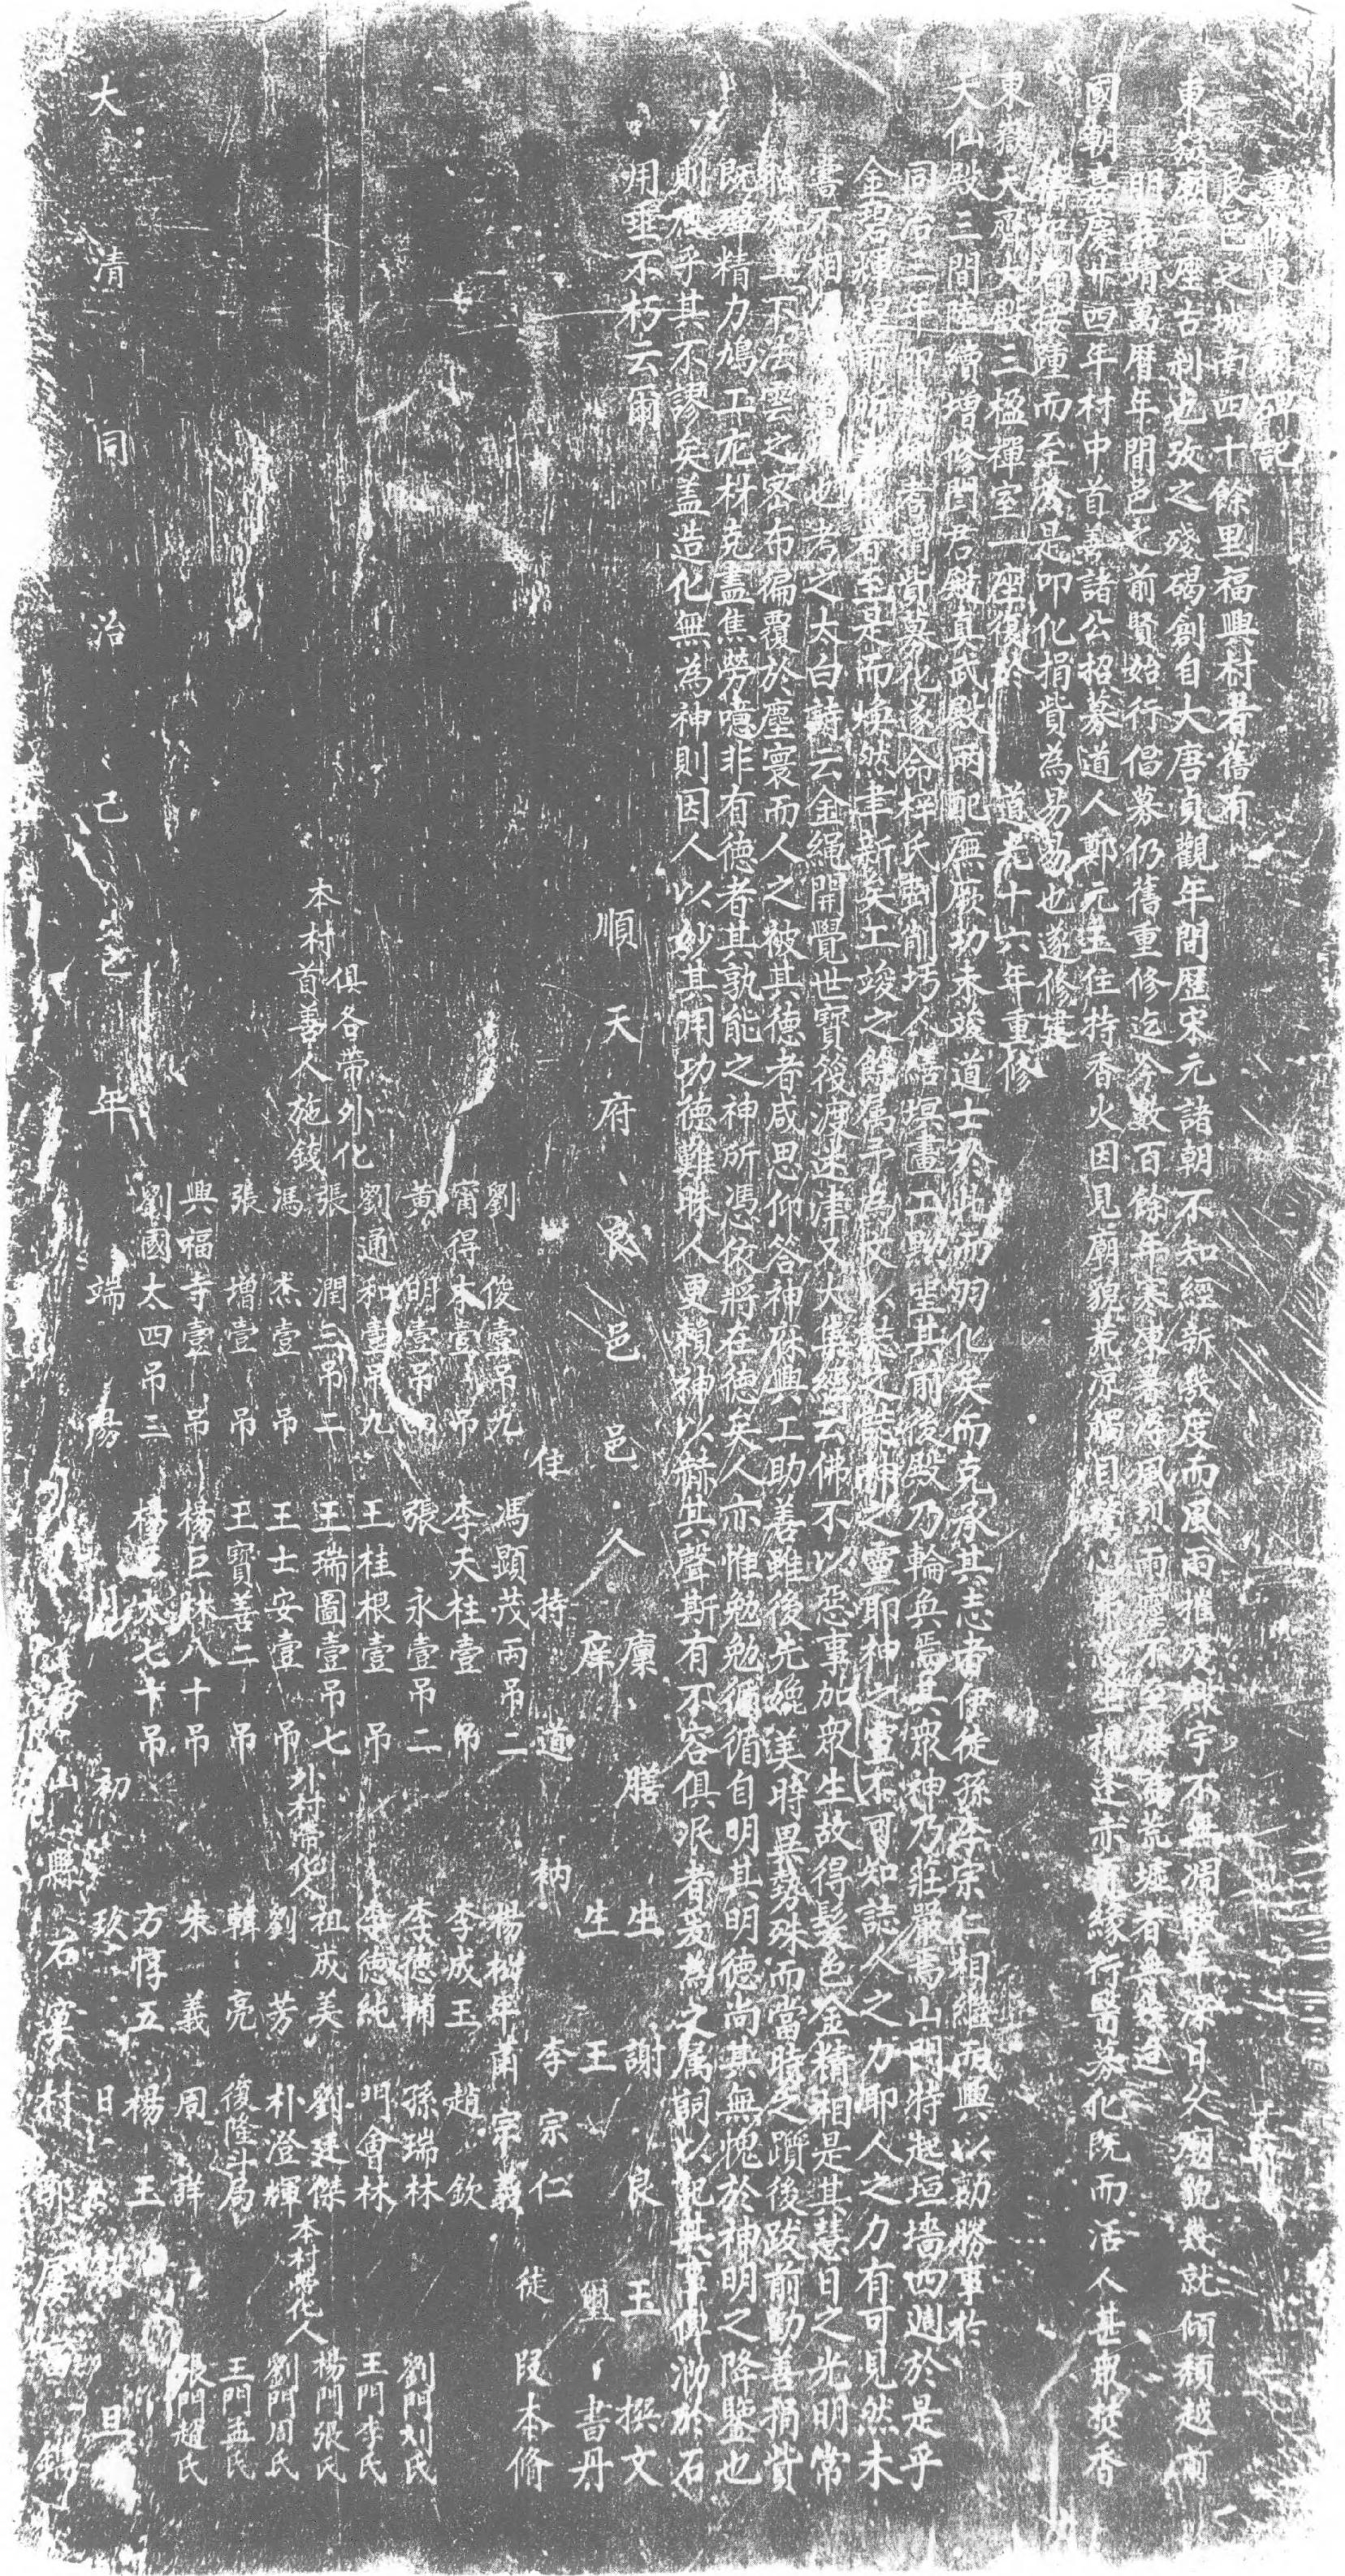 重修東嶽廟碑記
良邑之城南四十餘里福興村者舊有
東嶽廟一座古刹也攷之殘碣創自大唐貞觀年間歷宋元諸朝不知經新幾度而風雨推殘棟宇不無凋敝年深日久廟貌幾就傾頹越前
明嘉靖萬曆年間邑之前賢始行倡募仍舊重修迄今數百餘年寒凍暑溽風烈雨靈不至廢為荒墟者無幾迨
國朝嘉慶廿四年村中首善諸公招募道人郭元生住持香火因見廟貌荒凉觸目驚心 緣行醫募化既而活人甚眾焚香
接踵而至於是叩化捐貲為易易也遂修建
東嶽天齊大殿三楹禪室一座復於 道光十六年重修
天仙殿三間陸續增修閻君殿真武殿兩配廡厥功未竣道士於此而羽化矣而克承其志者伊徒孫李宗仁相繼而興以勷勝事於
同治二年叩 耆將貲募化遂命梓氏斲削圬人繕垣畫工黝堊其前後殿乃輪奐焉其眾神乃莊嚴焉山門特起垣墻四週於是乎
金碧輝煌 所 者至是而煥然聿新矣工竣之餘属予為文以誌之 神之靈耶神之靈不可知誌人之力耶人之力有可見然未
嘗不相 也考之太白詩云金繩開覺世寶筏渡迷津又大集經云佛不以惡事加眾生故得髮色金精相是其慧日之光明常
昭於上下法雲之密布徧覆於塵寰而人之被其德者咸思仰答神庥興工助善雖後先媲美時異勢殊而當時之躋後跋前勷善捐貲
既殫精力鳩工庀材克盡焦勞噫非有德者其孰能之神所憑依將在德矣人亦惟勉勉循循自明其明德尚其無愧於神明之降鑒也
則庶乎其不謬矣盖造化無為神則因人以妙其用功德難昧人更賴神以赫其聲斯有不容俱泯者爰為之属詞以記其事俾泐於石
用垂不朽云爾
順天府良邑邑人廩膳生謝良玉撰文
庠生王璽書丹
住持道衲李宗仁徒段本脩
劉俊壹吊九 馮顯茂兩吊二 楊松年 甫宗義
甯得本壹吊 李天柱壹吊 李成玉 趙欽
黃明壹吊 張永壹吊二 李德輔 孫瑞林 劉門刘氏
俱各帶外化 劉通和壹吊九 王桂根壹吊 李德純 門會林 王門李氏
本村首善人施錢 張潤三吊二 王瑞圖壹吊七 外村帶化人 祖成美 劉廷傑 本村帶化人 楊門張氏
馮杰壹吊 王士安壹吊 劉芳 朴澄輝 劉門周氏
張增壹吊 王寶善二吊 韓亮 復隆斗局 王門孟氏
興福寺壹吊 楊巨林八十吊 朱義 周詳 張門趙氏
劉國太四吊三 七十吊 方惇五 楊玉
大清同治己巳年端陽 初 日 旦
山縣石窩村 鐫